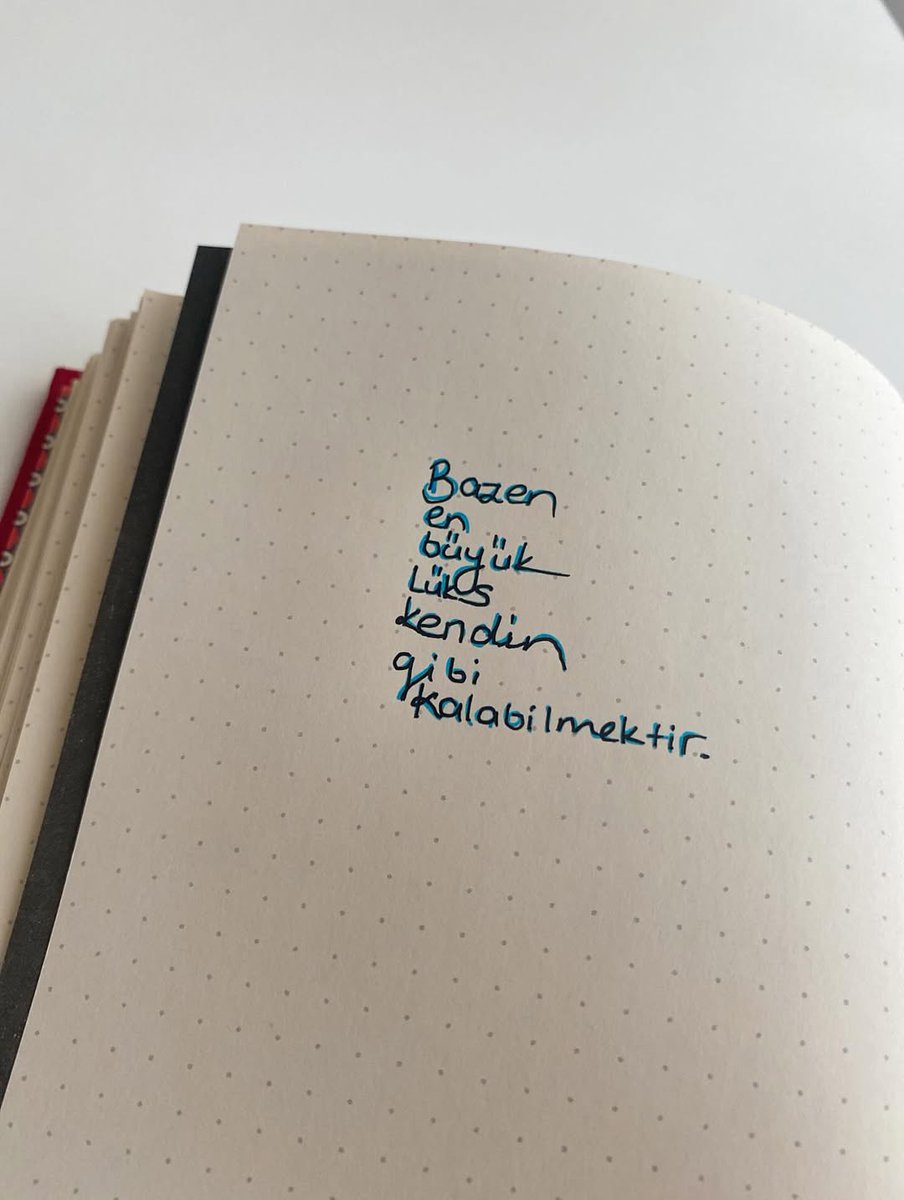 Bazen
en
büyük
Lüks
kendin
gibi
kalabilmektir.